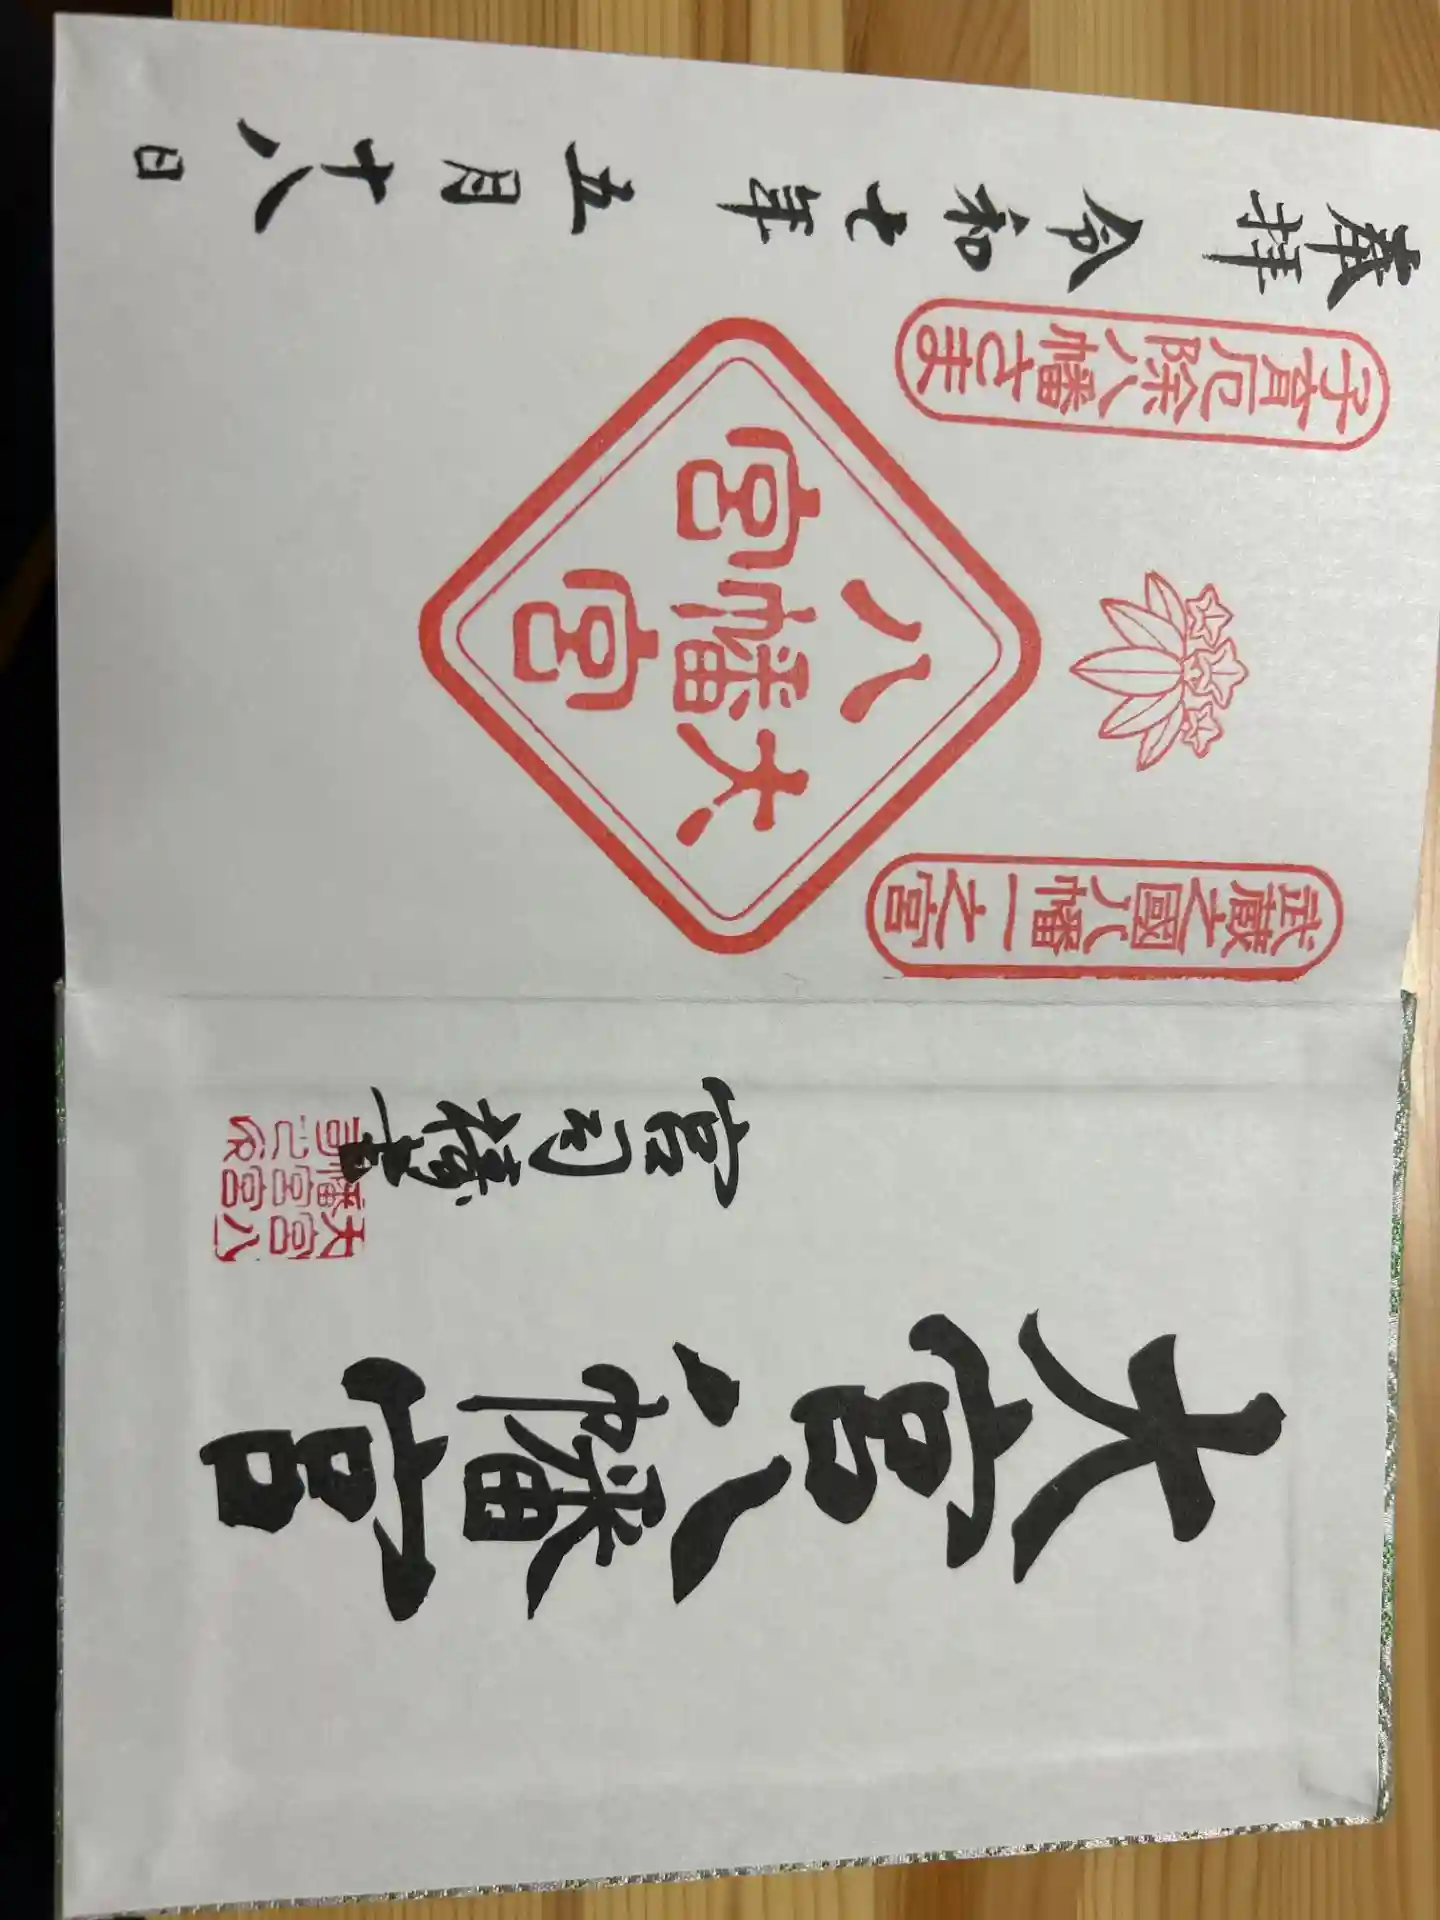 大宮八幡宮
宮司
大宮八
幡宮宮
司之印
武蔵之國八幡一之宮
大宮八幡宮
子育厄除八幡さま
奉拝 令和七年 五月十八日